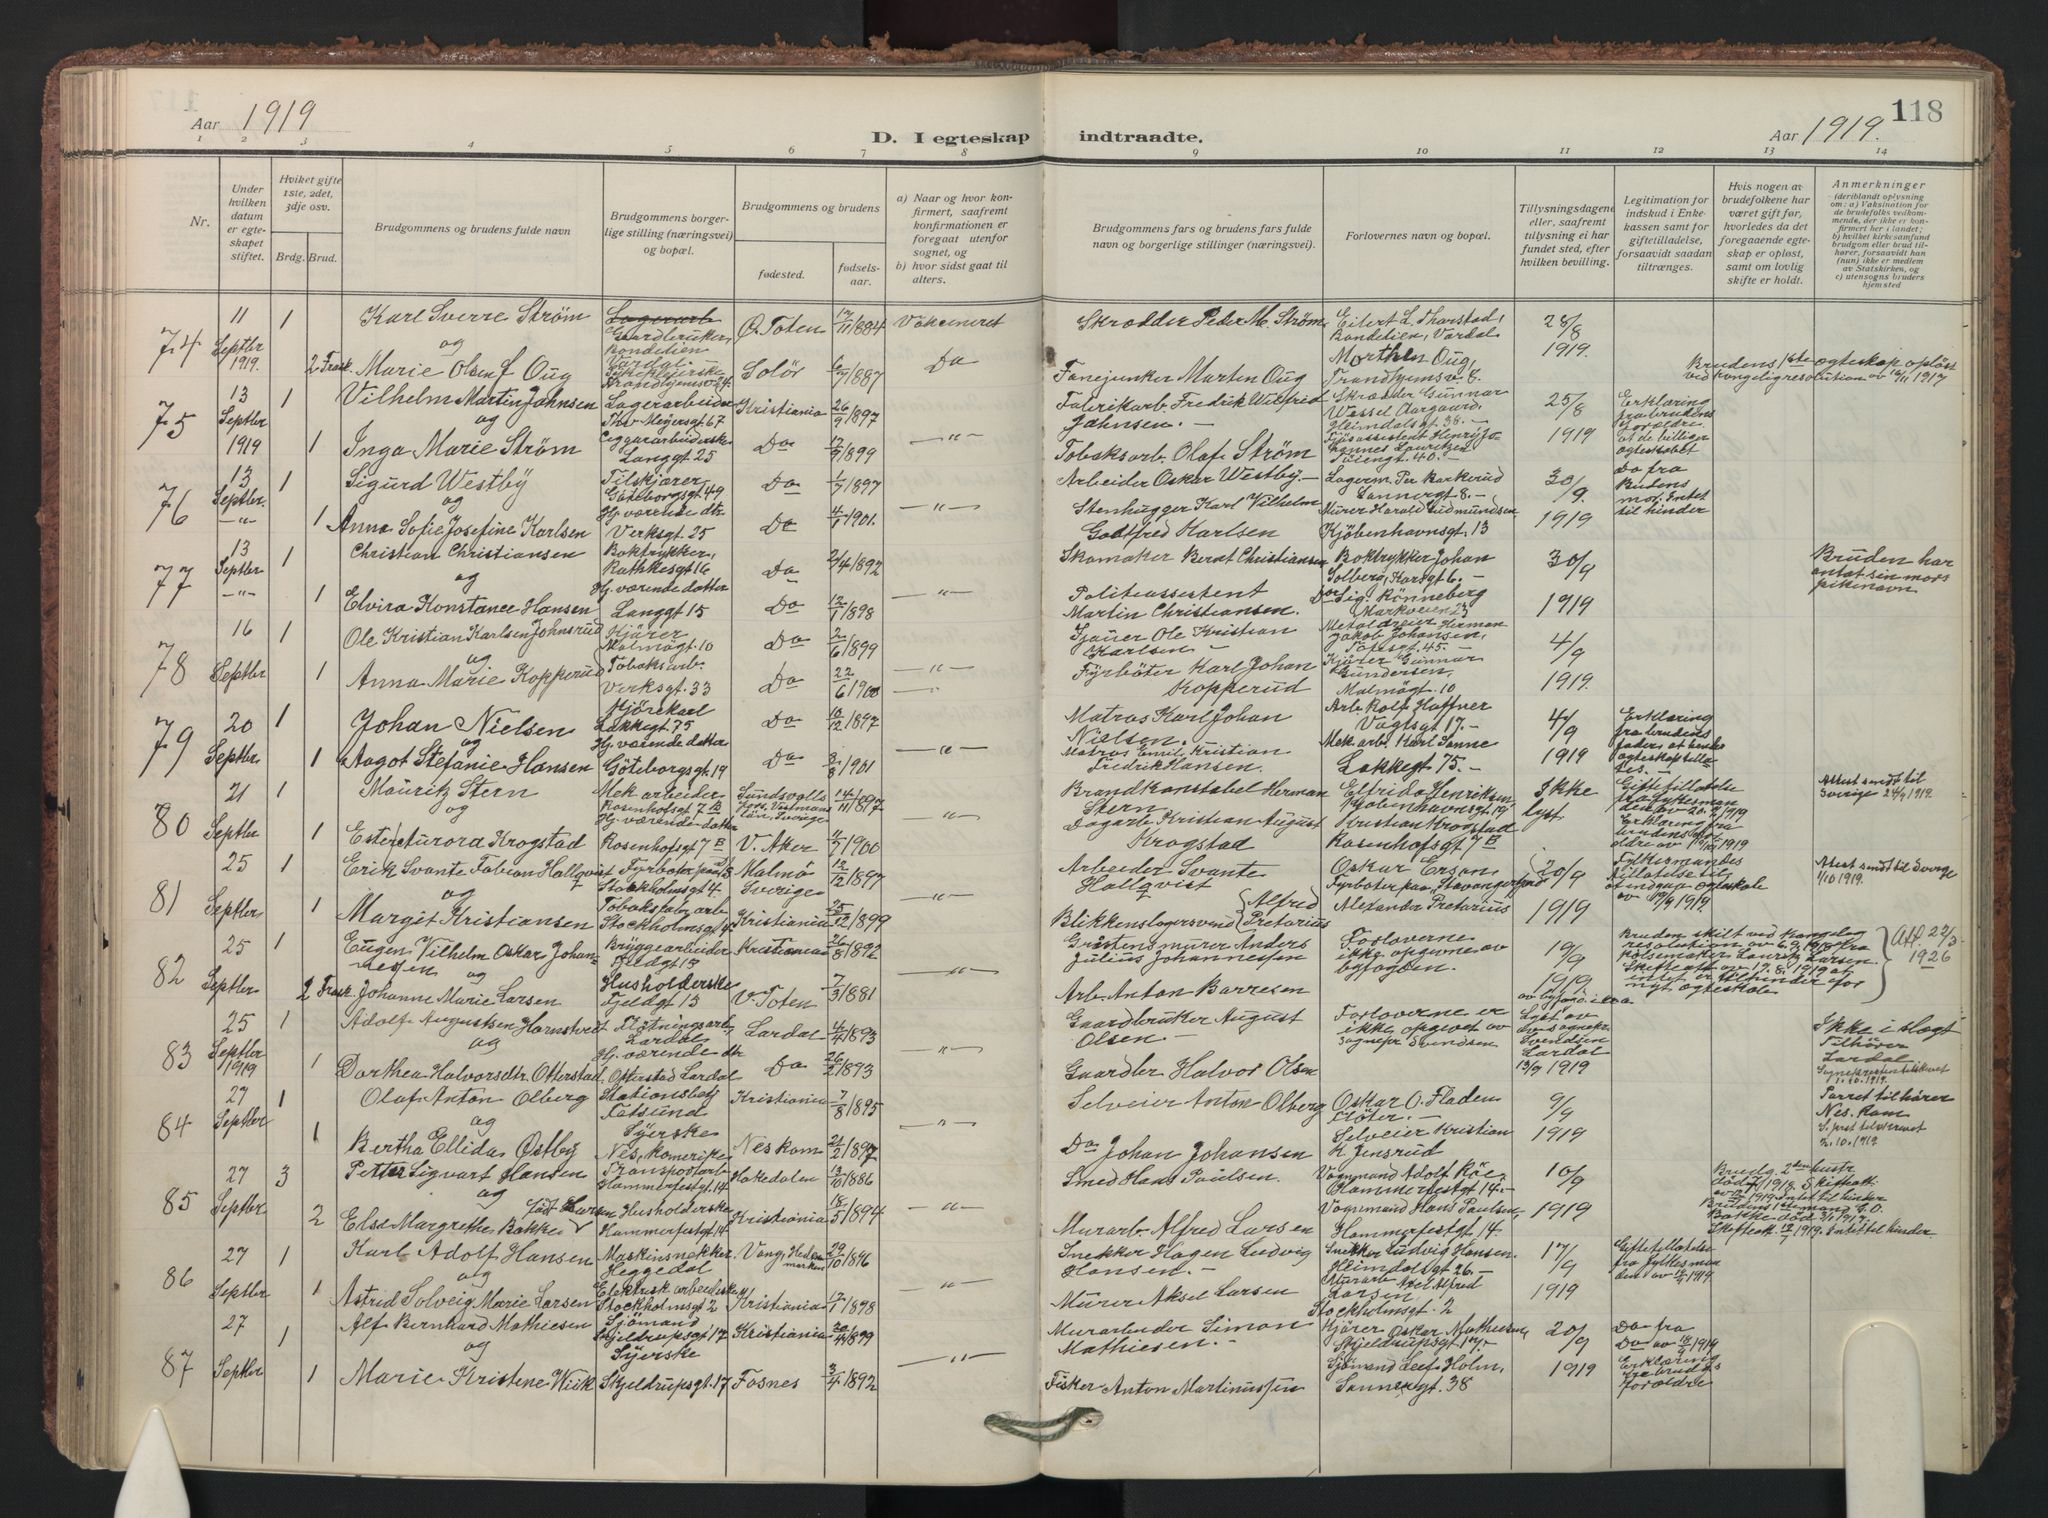 118
Aar 1919
D. I egteskap indtraadte.
Aar 1919.
1 2 3 4 5 6 7 8 9 10 11 12 13 14
Nr.
Under hvilken datum er egteskapet stiftet.
Hviket gifte 1ste, 2det, 3dje osv.
Brdg. Brud.
Brudgommens og brudens fulde navn
Brudgommens borgerlige stilling (næringsvei) og bopæl.
Brudgommens og brudens
fødested.
fødselsaar.
a) Naar og hvor konfirmert, saafremt konfirmationen er foregaat utenfor sognet, og
b) hvor sidst gaat til alters.
Brudgommens fars og brudens fars fulde navn og borgerlige stillinger (næringsvei).
Forlovernes navn og bopæl.
Tillysningsdagene eller, saafremt tillysning ei har fundet sted, efter hvilken bevilling.
Legitimation for indskud i Enkekassen samt for giftetilladelse, forsaavidt saadan tiltrænges.
Hvis nogen av brudefolkene har været gift før, hvorledes da det foregaaende egteskap er opløst, samt om lovlig skifte er holdt.
Anmerkninger
(deriblandt oplysning om: a) Vaksination for de brudefolks vedkommende, der ikke er konfirmert her i landet; b) hvilket kirkesamfund brudgom eller brud tilhører, forsaavidt han (hun) ikke er medlem av Statskirken, og c) utensogns bruders hjemsted
74 11 Septbr 1919. 1 Karl Sverre Strøm Gaardbruker, Bondelien Vardal Ø. Toten 17/11 1884 Vaksineret Skrædder Peder M. Strøm, Eilert L. Thorstad, Bondelien, Vardal 28/8 1919.
og
2 Frask. Marie Olsen f. Oug Trondhjemsv. 24. Solør 6/7 1887 Do Fanejunker Marten Oug Morthen Oug, Trondhjemsv. Brudens 1ste ægteskap opløst ved kongelig resolution av 16/11 1917
75 13 Septbr 1919 1 Vilhelm Martin Johnsen Lagerarbeider Ths. Meyersgt. 67 Kristiania 26/9 1897 Fabrikarb. Fredrik Wilfred Johnsen.- Skrædder Gunnar Wessel Aargaard, Heimdalsgt. 38.- 25/8 1919 Erklæring fra brudens forældre at de billiger ægteskabet
og
1 Inga Marie Strøm Ciggararbeiderske Langgt 25 Do 17/9 1899 —"— Tobaksarb. Olaf Strøm Tøiengt. 40.-
76 13 Septbr —"— 1 Sigurd Westby Tilskjærer Göteborgsgt. 49 Do 1/7 1897 Arbeider Oskar Westby.- Lagerm. Per Barkerud Sannergt 8.- 30/9. 1919 Do fra Budens mor. Intet til hinder
og
1 Anna Sofie Josefine Karlsen Hj. værende dtr. Verksgt. 25 Do 4/1 1901. —"— Stenhugger Karl Vilhelm Godtfred Karlsen Murer Harald Gudmundsen, Kjøbenhavnsgt. 13
77 13 Septbr —"— 1 Christian Christiansen Boktrykker, Rathkesgt 16 Do 2/4 1892 Skomaker Bernt Christiansen Boktrykker Johan Solberg, Korsgt 6.- 30/9 1919 Bruden har antat sin mors pikenavn
og
1 Elvira Konstance Hansen Hj. værende datter Langgt 15 Do 12/1 1898 —"— Politiassistent Martin Christiansen. Do Sig. Rønneberg Markveien 23
78 16 Septbr 1 Ole Kristian Karlsen Johnsrud Kjører Malmøgt. 10 Do 2/6 1899 Sjauer Ole Kristian Karlsen - Metaldreier Herman Jakob Johansen, Tøiesgt. 45.- 4/9 1919.
og
1 Anna Marie Kopperud Tobaksarb. Verksgt. 33 Do 22/6 1900 —"— Fyrbøter Karl Johan Kopperud Kjører Gunnar Gundersen, Malmøgt. 10
79 20 Septbr 1 Johan Nielsen Kjørekarl Lakkegt. 75 Do 10/12 1897 Matros Karl Johan Nielsen. Arb. Rolf Haffner Vogtsgt 17.- 4/9 1919 Erklæring fra brudens fader at hendes ægteskap tillates.-
og
1 Aagot Stefanie Hansen Hj. værende datter Göteborgsgt. 19 Do 2/8 1901 —"— Matros Emil Kristian Fredrik Hansen. Mek. arb. Karl Sanne Lakkegt 75.-
80 21 Septbr Mauritz Stern Mek arbeider Rosenhofsgt 7 B Sundsvolls Sverige 14/11 1897 Brandkonstabel Herman Stern Elfrida Henriksen, Kjøbenhavnsgt. 19 Ikke lyst. Giftetilladelse fra fylkesmanden av 20.9.1919 Attest sendt til Sverige 24/9 1919.
og
1 Ester Aurora Krogstad Hj. værende datter Rosenhofsgt 7 B V. Aker 11/7 1900 —"— Kristian August Krogstad Kristian Krogstad Rosenhofsgt 7 B Erklæring fra brudens forældre
81 25 Septbr 1 Erik Svante Fabian Hallqvist Fyrbøter Stockholmsgt 4. Malmø Sverige 12/12 1897 Arbeider Svante Hallqvist Oskar Erson Fyrbøter paa Stavangerfjord 20/9 1919 Fylkesmandens tilladelse til at indgaa ægteskab av 17/9 1919. Attest sendt til Sverige 1/10 1919.
og
1 Margit Kristiansen Tobaksfabr. arb Stockholmsgt 4 Kristiania 25/12 1899 —"— Blikkenslagersvend Alfred Pretorius Alexander Pretorius
82 25 Septbr 1 Eugen Vilhelm Oskar Johannesen Bryggearbeider Fjeldgt 13 Kristiania 26/8 1892 Gråstensmurer Anders Julius Johannesen Forloverne ikke opgivne av byfogden. 19/9 1919 Bruden skilt ved kongelig resolution av 6.9.1918 fra pølsemaker Lauritz Larsen. Skifteatt. av 17.8.1919 at intet er til hinder for nyt ægteskab. Atf. 22/3 1926
og
2 Frask. Johanne Marie Larsen Husholderske Fjeldgt 13 V. Toten 7/3 1881 —"— Arb. Anton Børresen
83 25 Septbr 1919 1 Adolf Augustsen Hornstvedt Fløtningsarb. Lardal Lardal 4/4 1893 Gaardbruker August Olsen - Forloverne er ikke opgivet av sognepr. Svendsen Lyst av sognepr. Svendsen Lardal 13/9 1919 Ikke i slægt Tilhører Lardal Sogneprestens tilskrevet 1.10.1919.
og
1 Dorthea Halvorsdtr. Otterstad Hj. værende dtr Otterstad Lardal Do 26/2 1893 —"— Gaardbr Halvor Olsen
84 27 Septbr 1 Olaf Anton Olberg Stationsbetj Fetsund Kristiania 7/8 1895 Selveier Anton Olberg Oskar O. Fladen Fløter.- 9/9 1919 Parret tilhører Nes. Rom S. prst tilskrevet 2.10.1919.
og
1 Bertha Ellida Østby Syerske Nes, Romerike Nes Rom 21/2 1897 —"— Do Johan Johansen Selveier Kristian K Jensrud
85 27 Septbr 3 Petter Sigvart Hansen Transportarb Hammerfestgt. 14 Hakedalen 13/10 1886 Smed Hans Paulsen. Vognmand Adolf Røe, Hammerfestgt 14.- 10/9 1919 Brudg. 2den hustr. død 1918. Skifteatt. 1919 Intet til hinder
og født Larsen
2 Else Margrethe Bakke Husholderske Hammerfestgt. 14 Kristiania 18/5 1894 —"— Murarb. Alfred Larsen Vognmand Hans Paulsen, Hammerfestgt. 14. Brudens 1ste mand G. O. Bakke død 1917. Skifteatt. 1919. Intet til hinder
86 27 Septbr 1 Karl Adolf Hansen Maskinsnekker Heggedal Vang, Hedemarken 29/10 1896 Snekker Hagen Ludvig Hansen.- Snekker Ludvig Hansen. Heimdalsgt 26.- 17/9 1919 Giftetilladelse fra fylkesmanden av 1919.
og
1 Astrid Solveig Marie Larsen Elektrisk arbeiderske Stockholmsgt 2 Kristiania 17/1 1898 —"— Murer Aksel Larsen Murarb Axel Alfred Larsen, Stockholmsgt. 2
87 27 Septbr 1 Alf Bernhard Mathiesen Sjømand Skjeldrupsgt 17 Kristiania 1899 Murarbeider Simon Mathiesen.- Kjører Oskar Mathiesen, Skjeldrupsgt 17.- 20/9 1919 Do fra Do av 18/9 1919 Erklæring fra brudens forældre
og
1 Marie Kristene Wiik Syerske Skjeldrupsgt. 17 Fosnes 3/4 1892 —"— Fisker Anton Martinussen Sjømand Leif Holm, Sannergt. 38